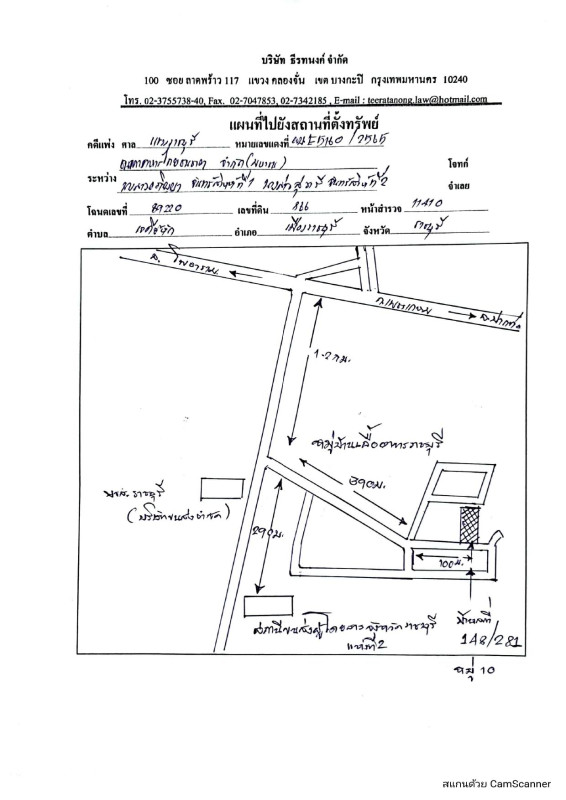 บริษัท ธีรทนงค์ จำกัด
100 ซอย ลาดพร้าว 117 แขวง คลองจั่น เขต บางกะปิ กรุงเทพมหานคร 10240
โทร. 02-3755738-40, Fax. 02-7047853, 02-7342185 , E-mail : teeratanong.law@hotmail.com
แผนที่ไปยังสถานที่ตั้งทรัพย์
คดีแพ่ง ศาล หมายเลขแดงที่
จำกัด (มหาชน) โจทก์
ระหว่าง ที่ 1 ที่ 2 จำเลย
โฉนดเลขที่ 89220 เลขที่ดิน 866 หน้าสำรวจ 11410
ตำบล เจดีย์หัก อำเภอ เมืองราชบุรี จังหวัด ราชบุรี
อ. โพธาราม
ถ.เพชรเกษม
อ.ปากท่อ
1.2 กม.
หมู่บ้านเอื้ออาทรราชบุรี
390ม.
บขส. ราชบุรี
(บริษัทขนส่งจำกัด)
290ม.
100ม.
สถานีขนส่งผู้โดยสาร จังหวัดราชบุรี
แห่งที่2
บ้านเลขที่
148/281
หมู่ 10
สแกนด้วย CamScanner